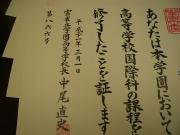 あなたは本学園において
高等学校国際科の課程を
修了したことを証します
平成二一年三月一日
高等学校長 中尾直史
第八六号